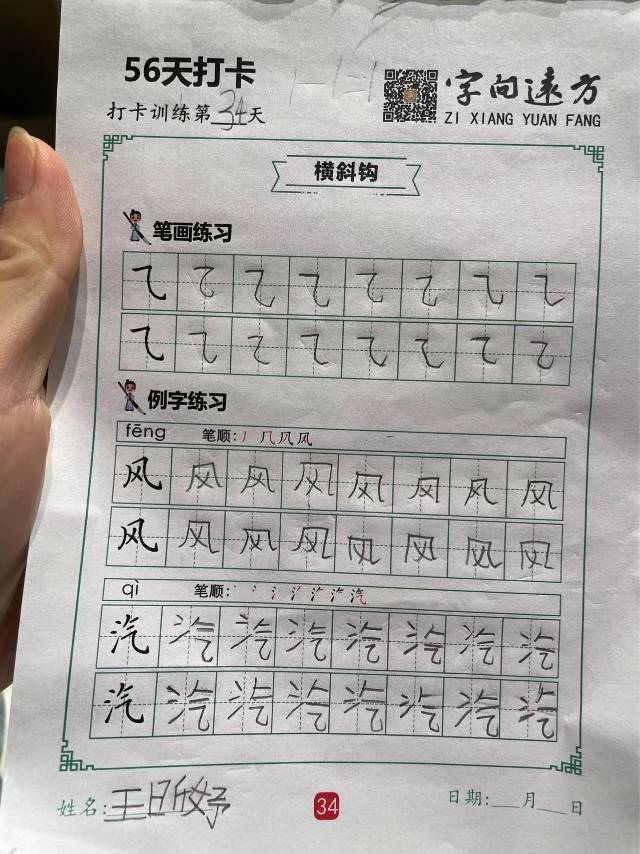 1-1=1
56天打卡
打卡训练第34天
字向远方
ZI XIANG YUAN FANG
横斜钩
笔画练习
乁 乁 乁 乁 乁 乁 乁 乁
乁 乁 乁 乁 乁 乁 乁 乁
例字练习
fēng 笔顺:丿 几 风 风
风 风 风 风 风 风 风 风
风 风 风 风 风 风 风 风
qì 笔顺:丶 冫 氵 汽
汽 汽 汽 汽 汽 汽 汽 汽
汽 汽 汽 汽 汽 汽 汽 汽
姓名:王昕妤
34
日期:__月__日